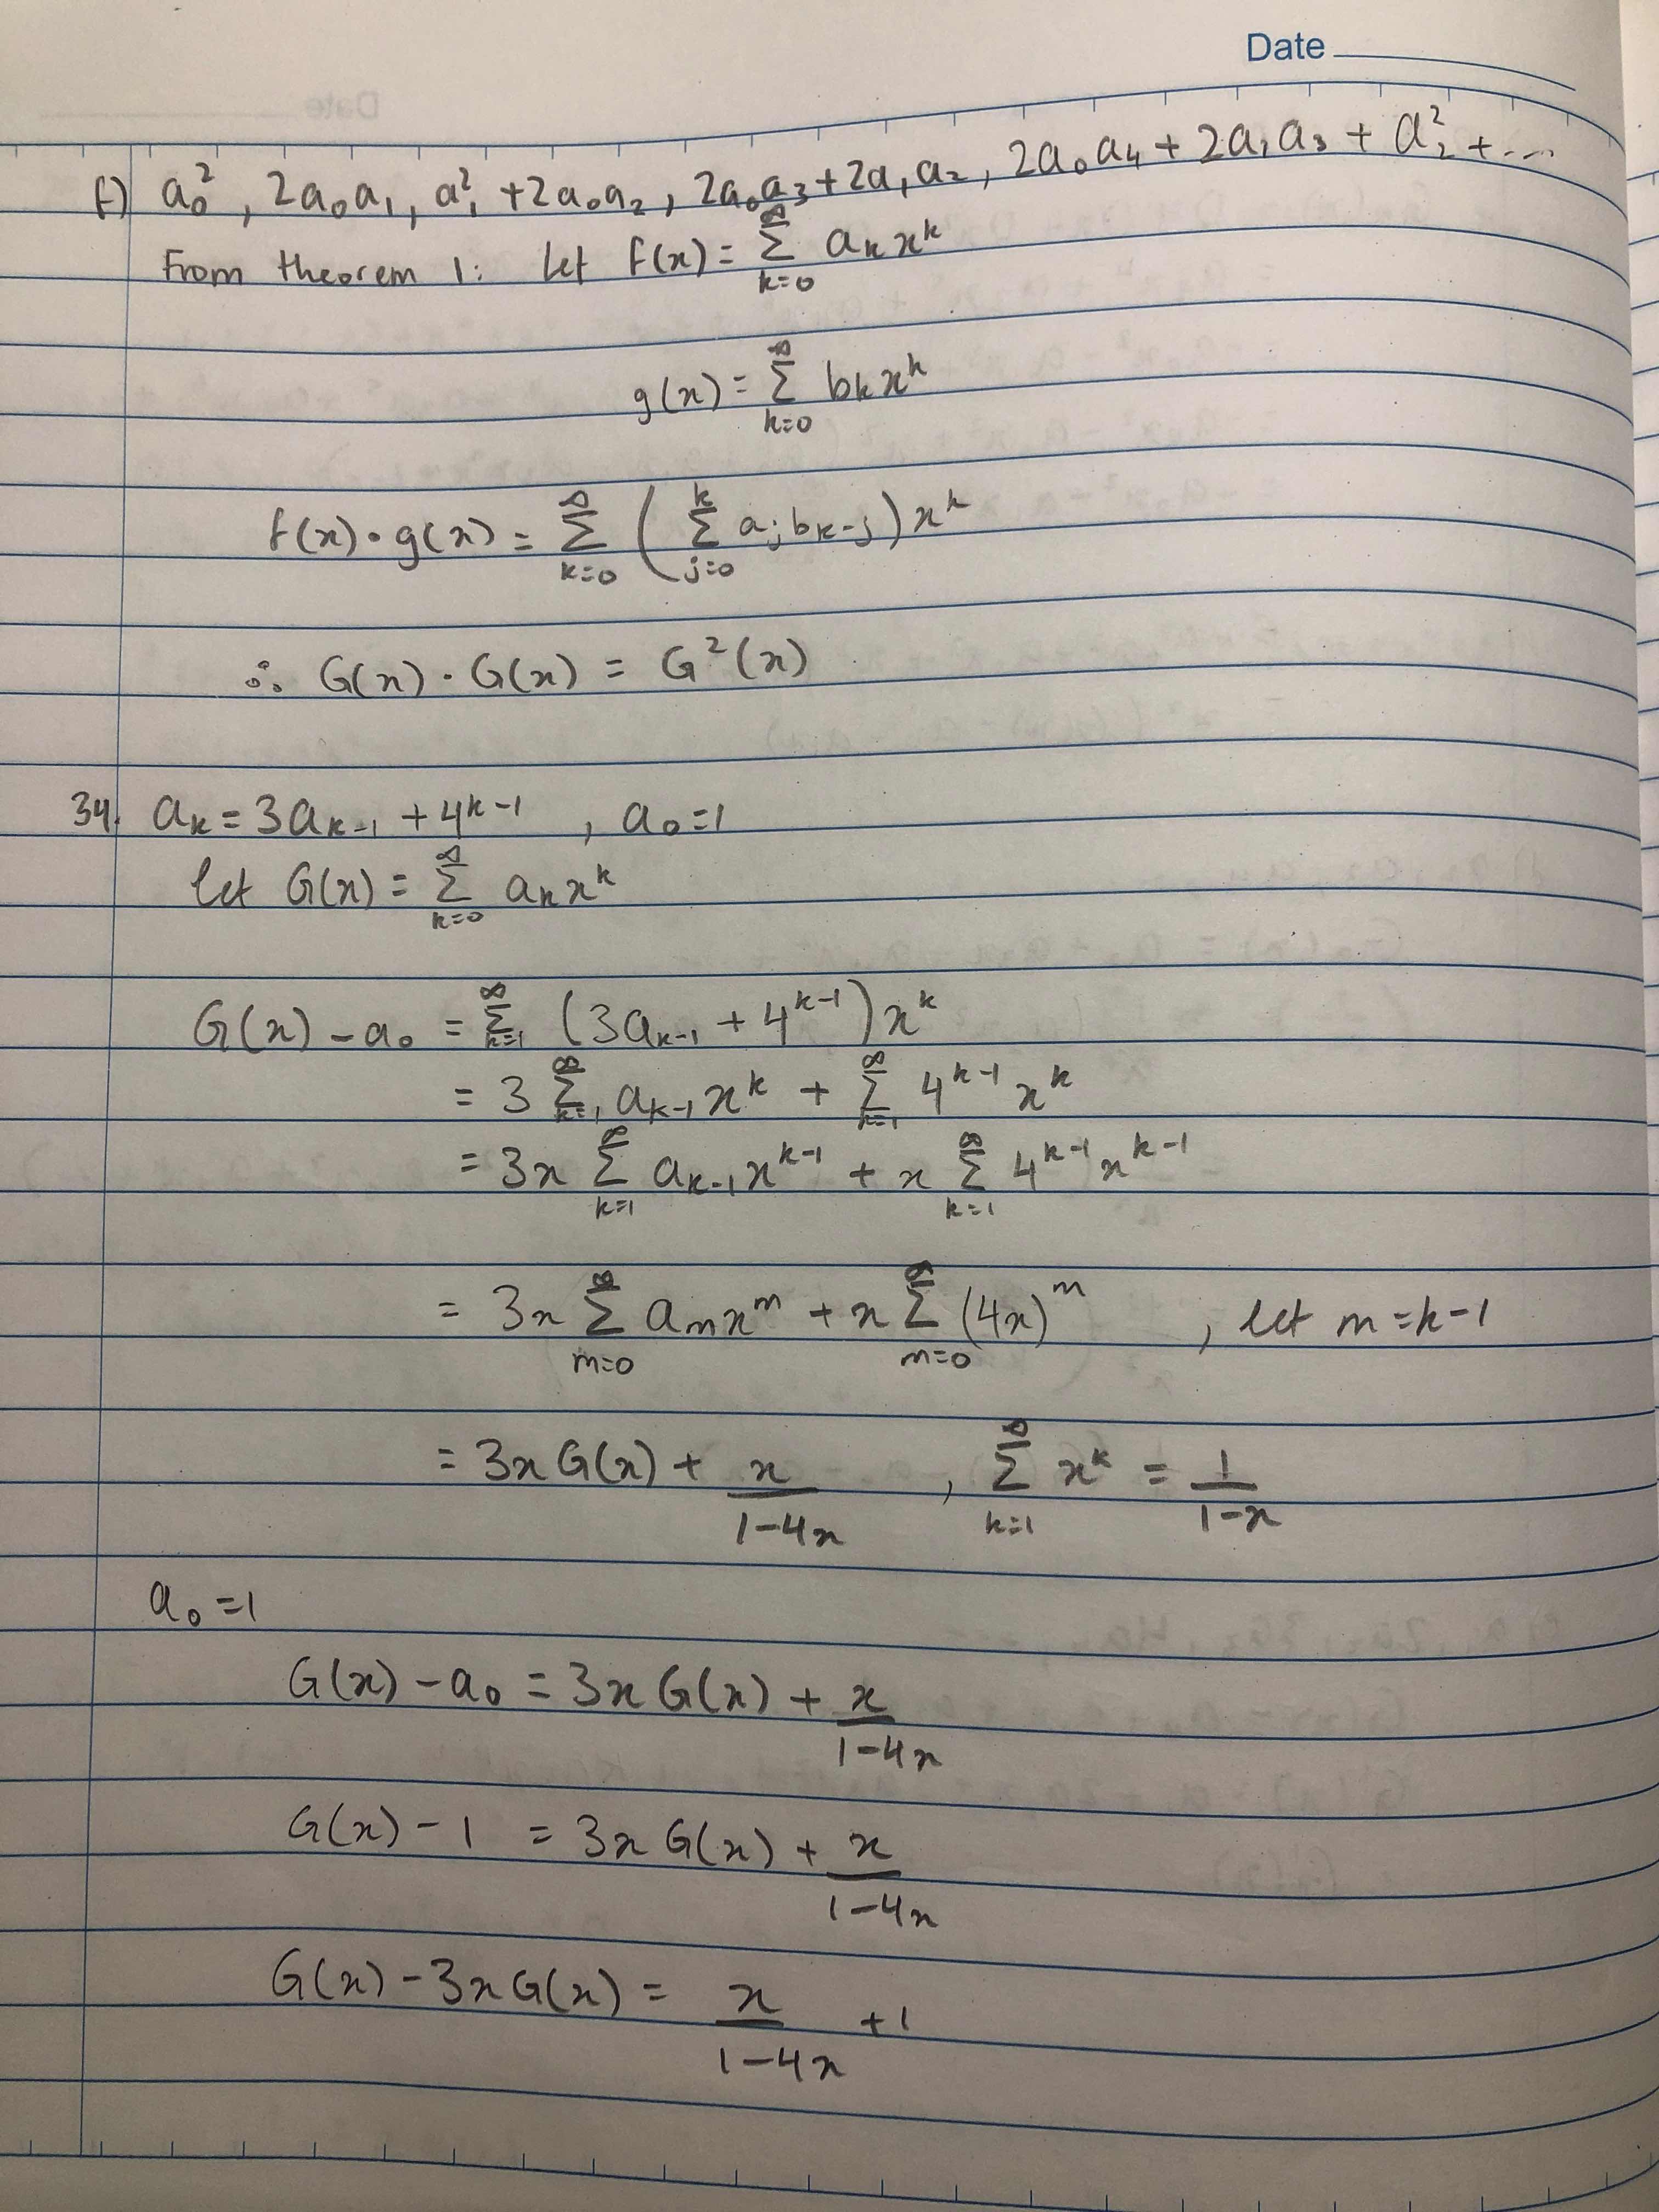 Date
f) a₀², 2a₀a₁, a₁² + 2a₀a₂, 2a₀a₃ + 2a₁a₂, 2a₀a₄ + 2a₁a₃ + a₂² + ...
From theorem 1: let f(x) = ∑_{k=0}^{∞} aₖxᵏ
g(x) = ∑_{k=0}^{∞} bₖxᵏ
f(x)·g(x) = ∑_{k=0}^{∞} ( ∑_{j=0}^{k} a_j b_{k-j} ) xᵏ
∴ G(x) · G(x) = G²(x)
34. aₖ = 3a_{k-1} + 4^{k-1} , a₀ = 1
let G(x) = ∑_{k=0}^{∞} aₖxᵏ
G(x) - a₀ = ∑_{k=1}^{∞} (3a_{k-1} + 4^{k-1}) xᵏ
= 3 ∑_{k=1}^{∞} a_{k-1} xᵏ + ∑_{k=1}^{∞} 4^{k-1} xᵏ
= 3x ∑_{k=1}^{∞} a_{k-1} x^{k-1} + x ∑_{k=1}^{∞} 4^{k-1} x^{k-1}
= 3x ∑_{m=0}^{∞} a_m x^m + x ∑_{m=0}^{∞} (4x)^m , let m = k-1
= 3x G(x) + x/(1-4x) , ∑_{k=1}^{∞} xᵏ = 1/(1-x)
a₀ = 1
G(x) - a₀ = 3x G(x) + x/(1-4x)
G(x) - 1 = 3x G(x) + x/(1-4x)
G(x) - 3x G(x) = x/(1-4x) + 1